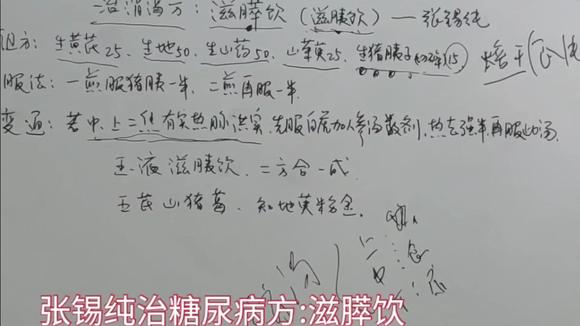 治消渴方:滋膵饮(滋胰饮)—张锡纯
组方:生黄芪25、生地50、生山药50、山萸肉25、生猪胰子(切碎)15
服法:一煎服猪胰一半,二煎再服一半
变通:若中、上二焦有实热脉洪实,先服白虎加人参汤数剂,热去强半,再服此汤
玉液滋胰饮,二方合一成
玉芪山猪葛,知地萸粉金
张锡纯治糖尿病方:滋膵饮